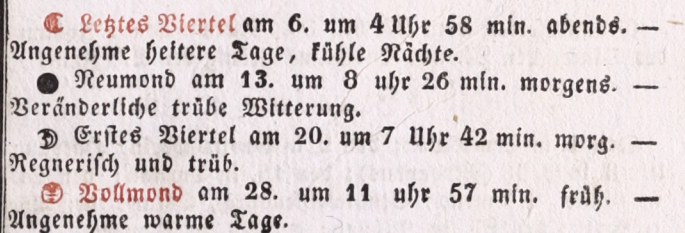 ☾ Letztes Viertel am 6. um 4 Uhr 58 min. abends. —
Angenehme heitere Tage, kühle Nächte.
● Neumond am 13. um 8 uhr 26 min. morgens. —
Veränderliche trübe Witterung.
☽ Erstes Viertel am 20. um 7 Uhr 42 min. morg. —
Regnerisch und trüb.
Vollmond am 28. um 11 uhr 57 min. früh. —
Angenehme warme Tage.